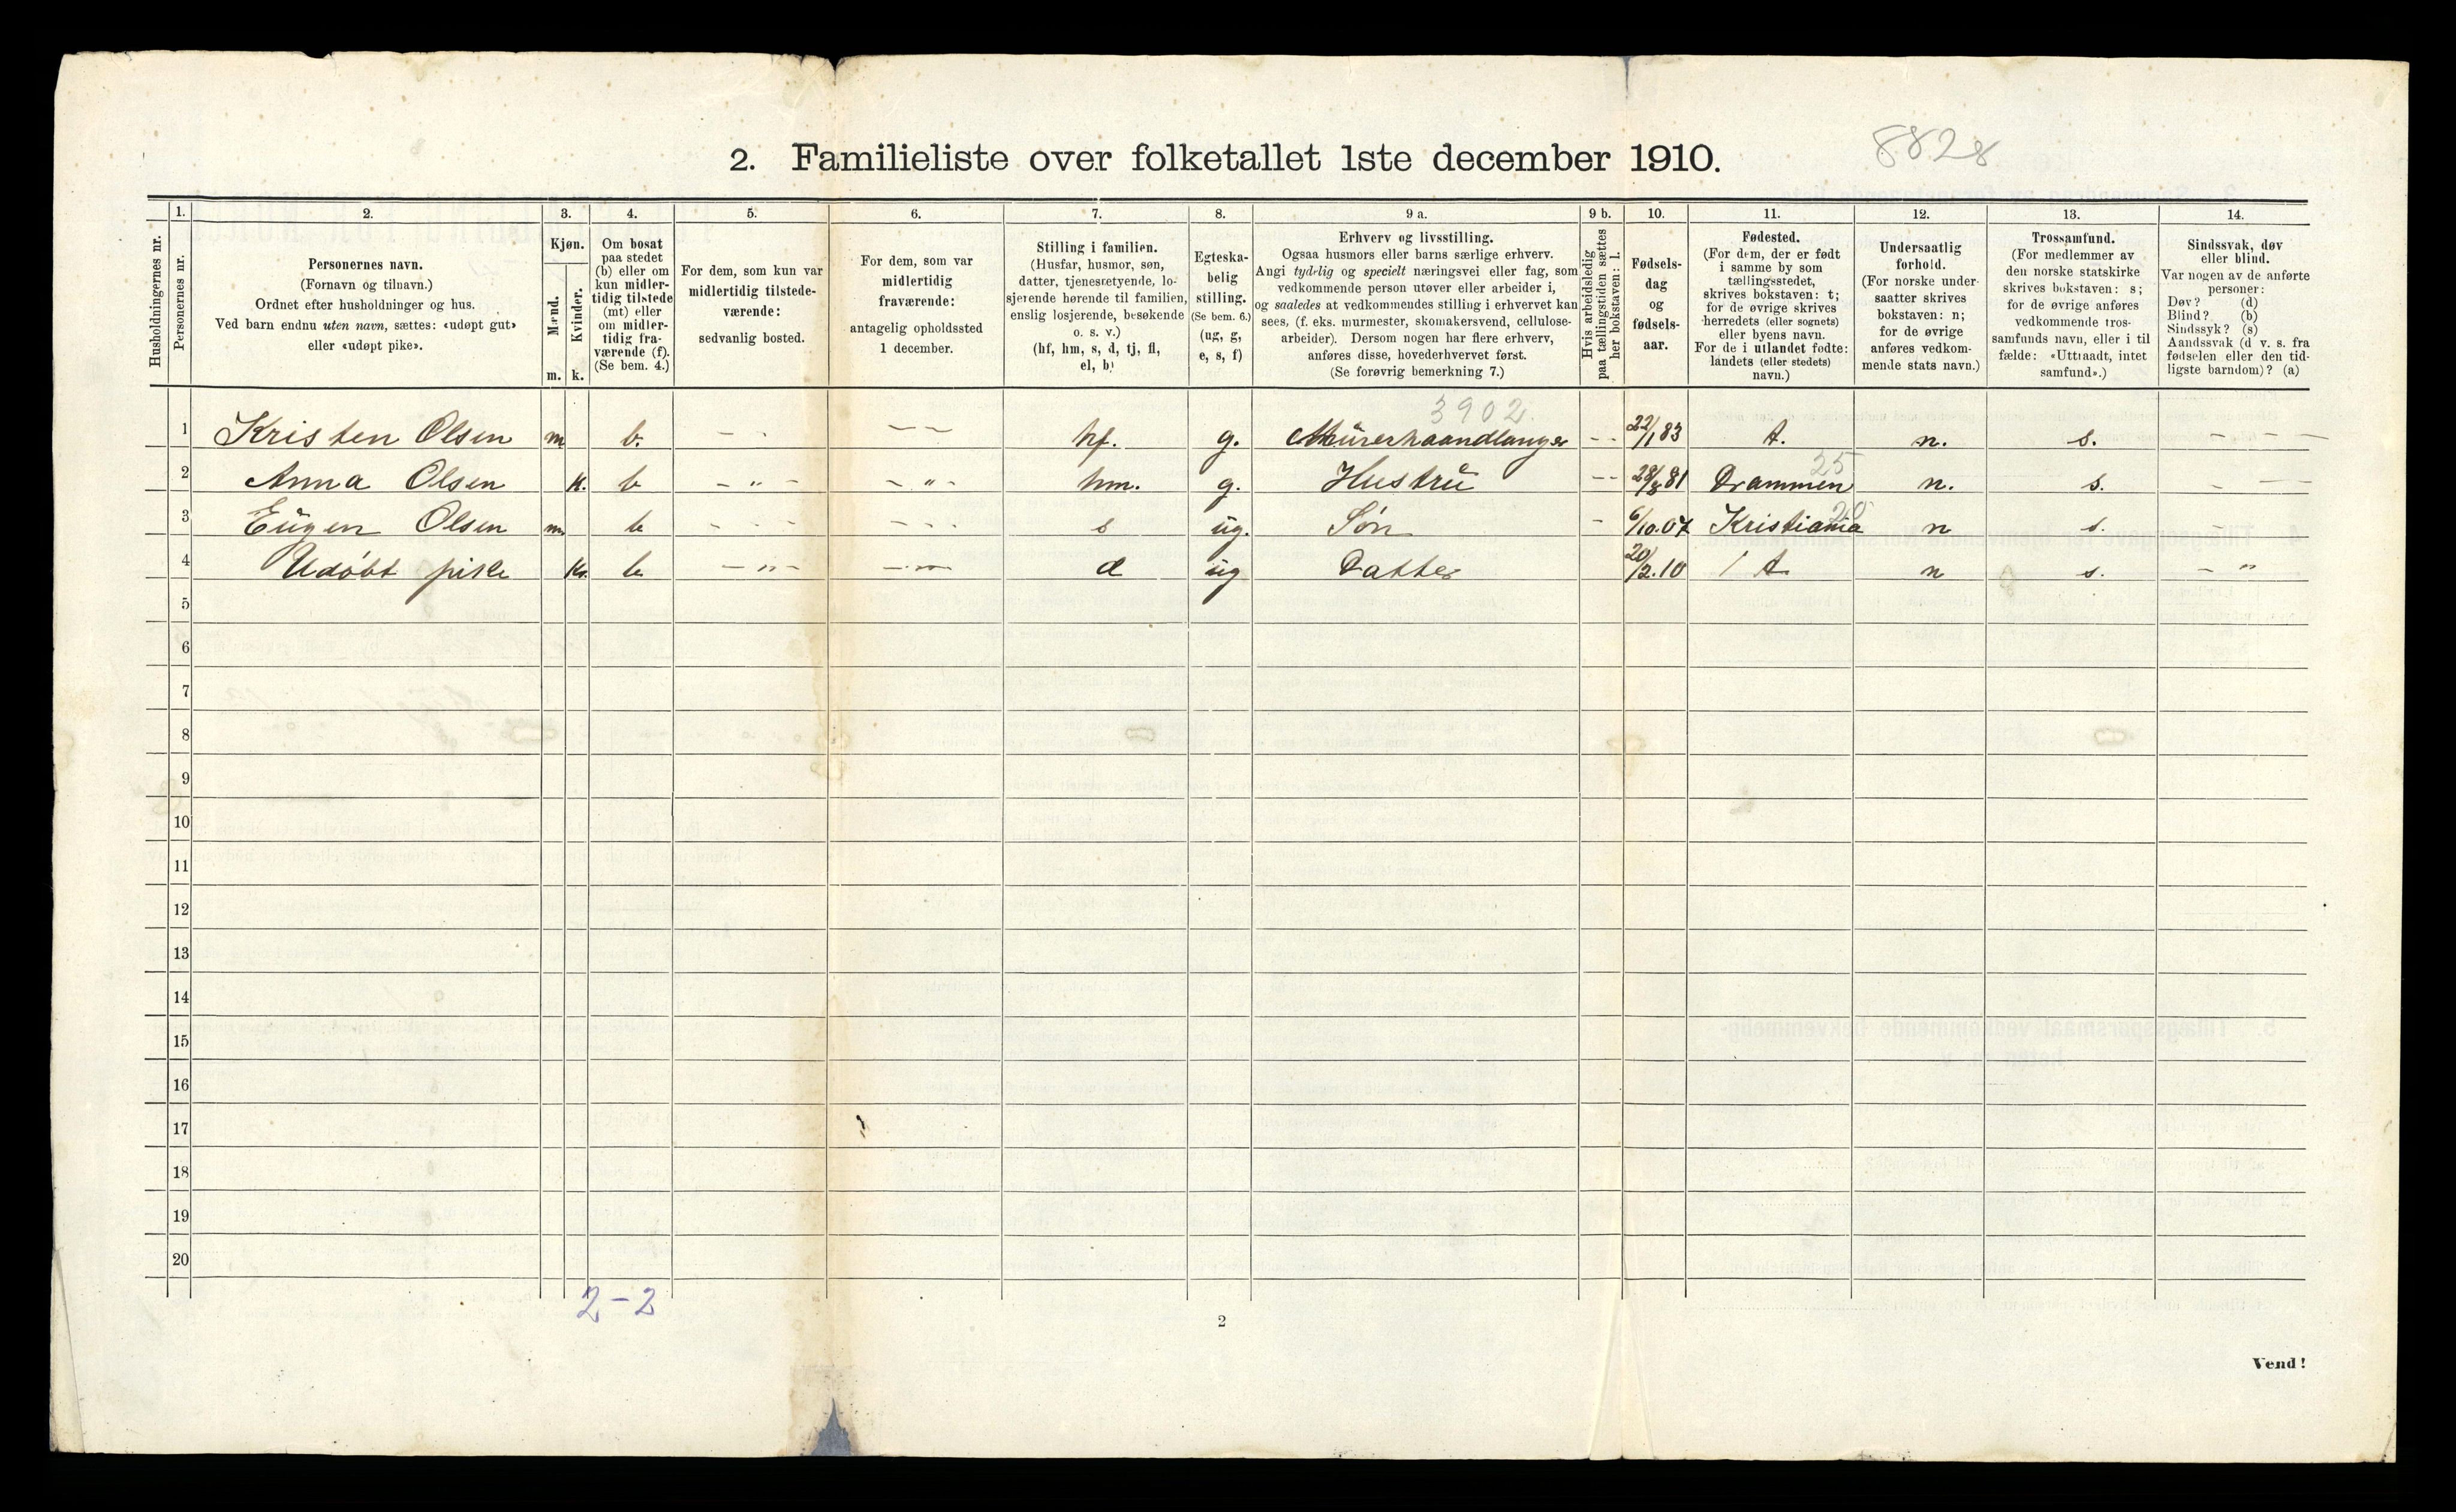 8828
2. Familieliste over folketallet 1ste december 1910.
Husholdningernes nr.
1.
Personernes nr.
2.
Personernes navn.
(Fornavn og tilnavn.)
Ordnet efter husholdninger og hus.
Ved barn endnu uten navn, sættes: «udøpt gut»
eller «udøpt pike».
3.
Kjøn.
Mænd.
Kvinder.
m. k.
4.
Om bosat
paa stedet
(b) eller om
kun midler-
tidig tilstede
(mt) eller
om midler-
tidig fra-
værende (f).
(Se bem. 4.)
5.
For dem, som kun var
midlertidig tilstede-
værende:
sedvanlig bosted.
6.
For dem, som var
midlertidig
fraværende:
antagelig opholdssted
1 december.
7.
Stilling i familien.
(Husfar, husmor, søn,
datter, tjenestetyende, lo-
sjerende hørende til familien,
enslig losjerende, besøkende
o. s. v.)
(hf, hm, s, d, tj, fl,
el, b)
8.
Egteska-
belig
stilling.
(Se bem. 6.)
(ug, g,
e, s, f)
9 a.
Erhverv og livsstilling.
Ogsaa husmors eller barns særlige erhverv.
Angi tydelig og specielt næringsvei eller fag, som
vedkommende person utøver eller arbeider i,
og saaledes at vedkommendes stilling i erhvervet kan
sees, (f. eks. murmester, skomakersvend, cellulose-
arbeider). Dersom nogen har flere erhverv,
anføres disse, hovederhvervet først.
(Se forøvrig bemerkning 7.)
9 b.
Hvis arbeidsledig
paa tællingstiden sættes
her bokstaven: l.
10.
Fødsels-
dag
og
fødsels-
aar.
11.
Fødested.
(For dem, der er født
i samme by som
tællingsstedet,
skrives bokstaven: t;
for de øvrige skrives
herredets (eller sognets)
eller byens navn.
For de i utlandet fødte:
landets (eller stedets)
navn.)
12.
Undersaatlig
forhold.
(For norske under-
saatter skrives
bokstaven: n;
for de øvrige
anføres vedkom-
mende stats navn.)
13.
Trossamfund.
(For medlemmer av
den norske statskirke
skrives bokstaven: s;
for de øvrige anføres
vedkommende tros-
samfunds navn, eller i til
fælde: «Uttraadt, intet
samfund».)
14.
Sindssvak, døv
eller blind.
Var nogen av de anførte
personer:
Døv? (d)
Blind? (b)
Sindssyk? (s)
Aandssvak (d v. s. fra
fødselen eller den tid-
ligste barndom)? (a)
3902.
1 Kristen Olsen m b. - - - - hf. g. Mürerhaandlanger - - 22/1 83 t. n. s. - - -
25
2 Anna Olsen k. b - " - - " - hm. g. Hustrü - - 28/8 81 Drammen n. s. - -
20
3 Eügen Olsen m b - - - - - - s üg. Søn - 6/10.07 Kristiania n s. -
4 Udøbt pike k. b - " - - " - d üg Datter 20/2.10 t. n s. - "
5
6
7
8
9
10
11
12
13
14
15
16
17
18
19
20
2-2
2
Vend!